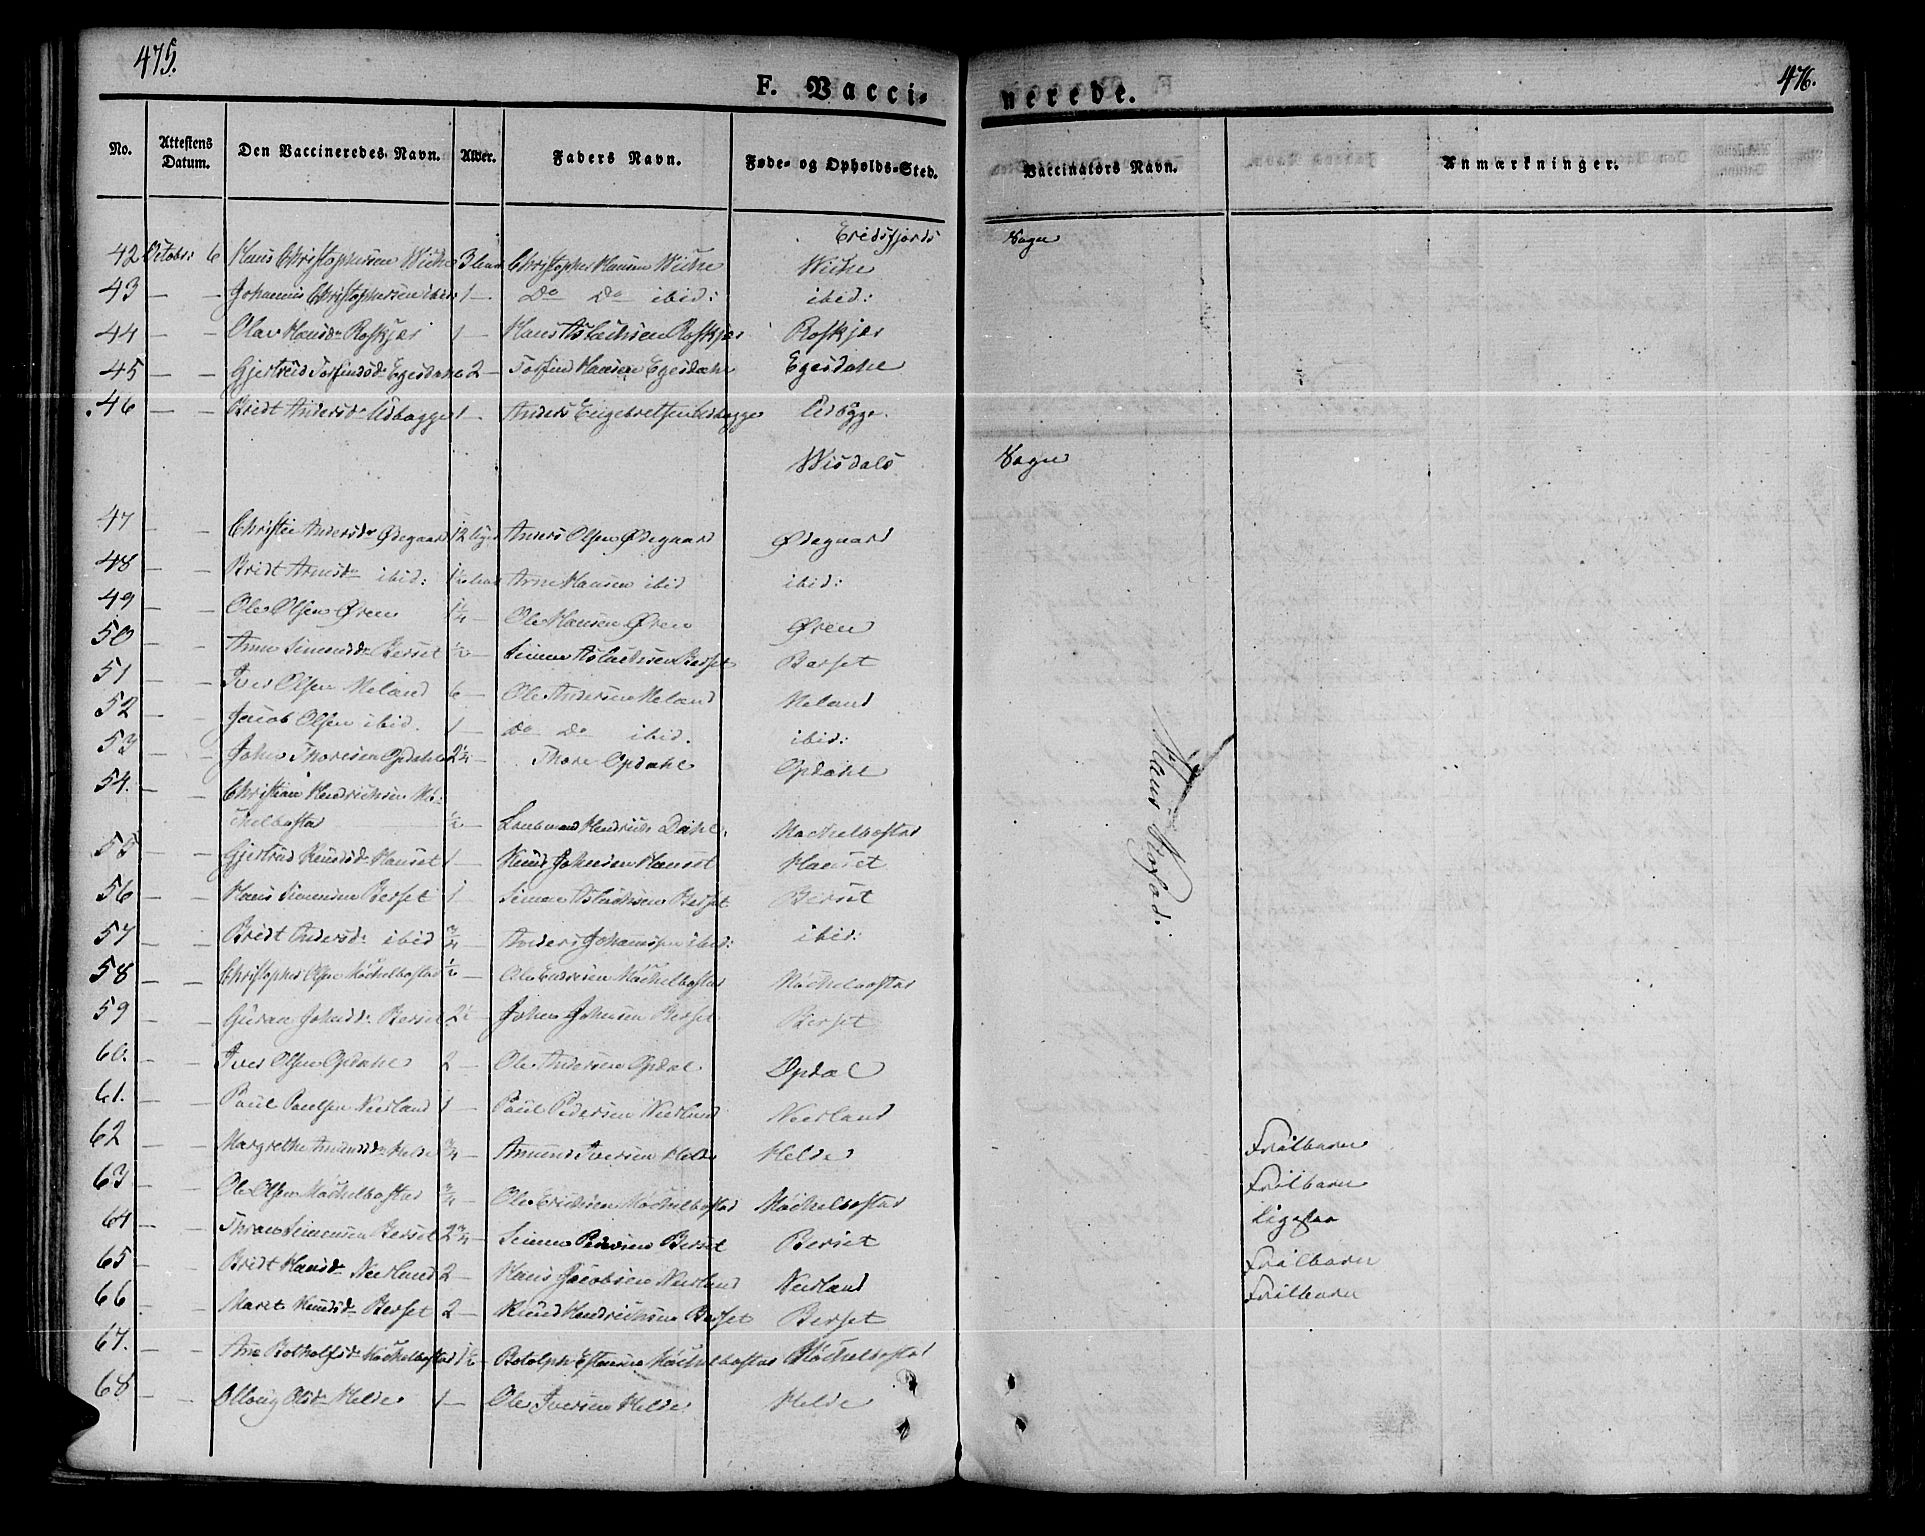 475.
476.
F. Vacci-
nerede.
No. Attestens Datum. Den Vaccineredes Navn. Alder. Faders Navn. Føde- og Opholds-Sted. Vaccinators Navn. Anmærkninger.
Eridsfjords Sogn
42 Octobr: 6 Hans Christophersen Wiche 3 Christopher Hansen Wiche Wiche
43 — — Johannis Christophersen ibid: 1 — Do Do ibid: ibid:
44 — — Olav Hansdr Roskjær 1 — Hans Aslachsen Roskjær Roskjær
45 — — Gjertrud Torfindsdr Egesdahl 2 — Torfind Hansen Egesdahl Egesdahl
46 — — Bridt Andersdr 1 — Anders Engebretsen
Wisdals Sogn
47 — — Christie Andersdr Ødegaard 12 Anders Olsen Ødegaard Ødegaard
48 — — Bridt Arnesdr ibid: Arne Hansen ibid ibid:
49 — — Ole Olsen Øren 1¼ — Ole Hansen Øren Øren
50 — — Anne Simensdr Berset ½ — Simen Aslachsen Berset Berset
51 — — Iver Olsen Meland 6 — Ole Andersen Meland Meland
52 — — Jacob Olsen ibid. 1 — do Do ibid. ibid:
53 — — John Thoresen Opdahl 2¼ — Thore Opdahl Opdahl
54. — — Christian Hendrichsen Mö-
chelbostad ½ — Hendrich Dahl. Machelbostad
55 — — Gjertrud Knudsdr Hanset 1 — Knud Johnsen Hanset Hanset
56 — — Hans Simensen Berset 1 — Simen Aslachsen Berset Berset
57 — — Bridt Andersdr ibid ¾ — Anders Johansen ibid: ibid:
58 — — Christopher Olsen Möchelbostad ½ — Ole Endresen Möchelbostad Möchelbostad
59 — — Guran Johnsdr Berset 2½ — John Johnsen Berset Berset
60. — — Iver Olsen Opdahl 2 — Ole Andersen Opdal Opdal
61. — — Paul Paulsen Neerland 1 — Paul Pedersen Neerland Neerland
62 — — Margrethe Amundsdr Helde ¾ — Amund Iversen Helde Helde
63 — — Ole Olsen Möchelbostad ¾ — Ole Erichsen Möchelbostad Möchelbostad
64 — — Simensen Berset 2¾ — Simen Pedersen Berset Berset
65 — — Bridt Hansdr Neerland 2 — Hans Jacobsen Neerland Neerland
66 — — Marit Knudsdr Berset 2 — Knud Hendrichsen Berset Berset
67. — — Ane Botholfsdr Möchelbostad 1½ — Botolph Möchelbostad Möchelbostad
68 — — Olloug Olsdr Helde 1 — Ole Iversen Helde Helde
Hans